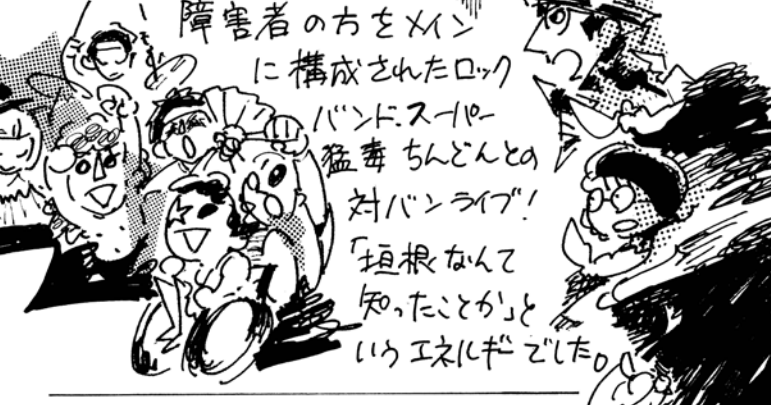 障害者の方をメイン
に構成されたロック
バンド、スーパー
猛毒ちんどんとの
対バンライブ!
「垣根なんて
知ったことか」と
いうエネルギーでした。